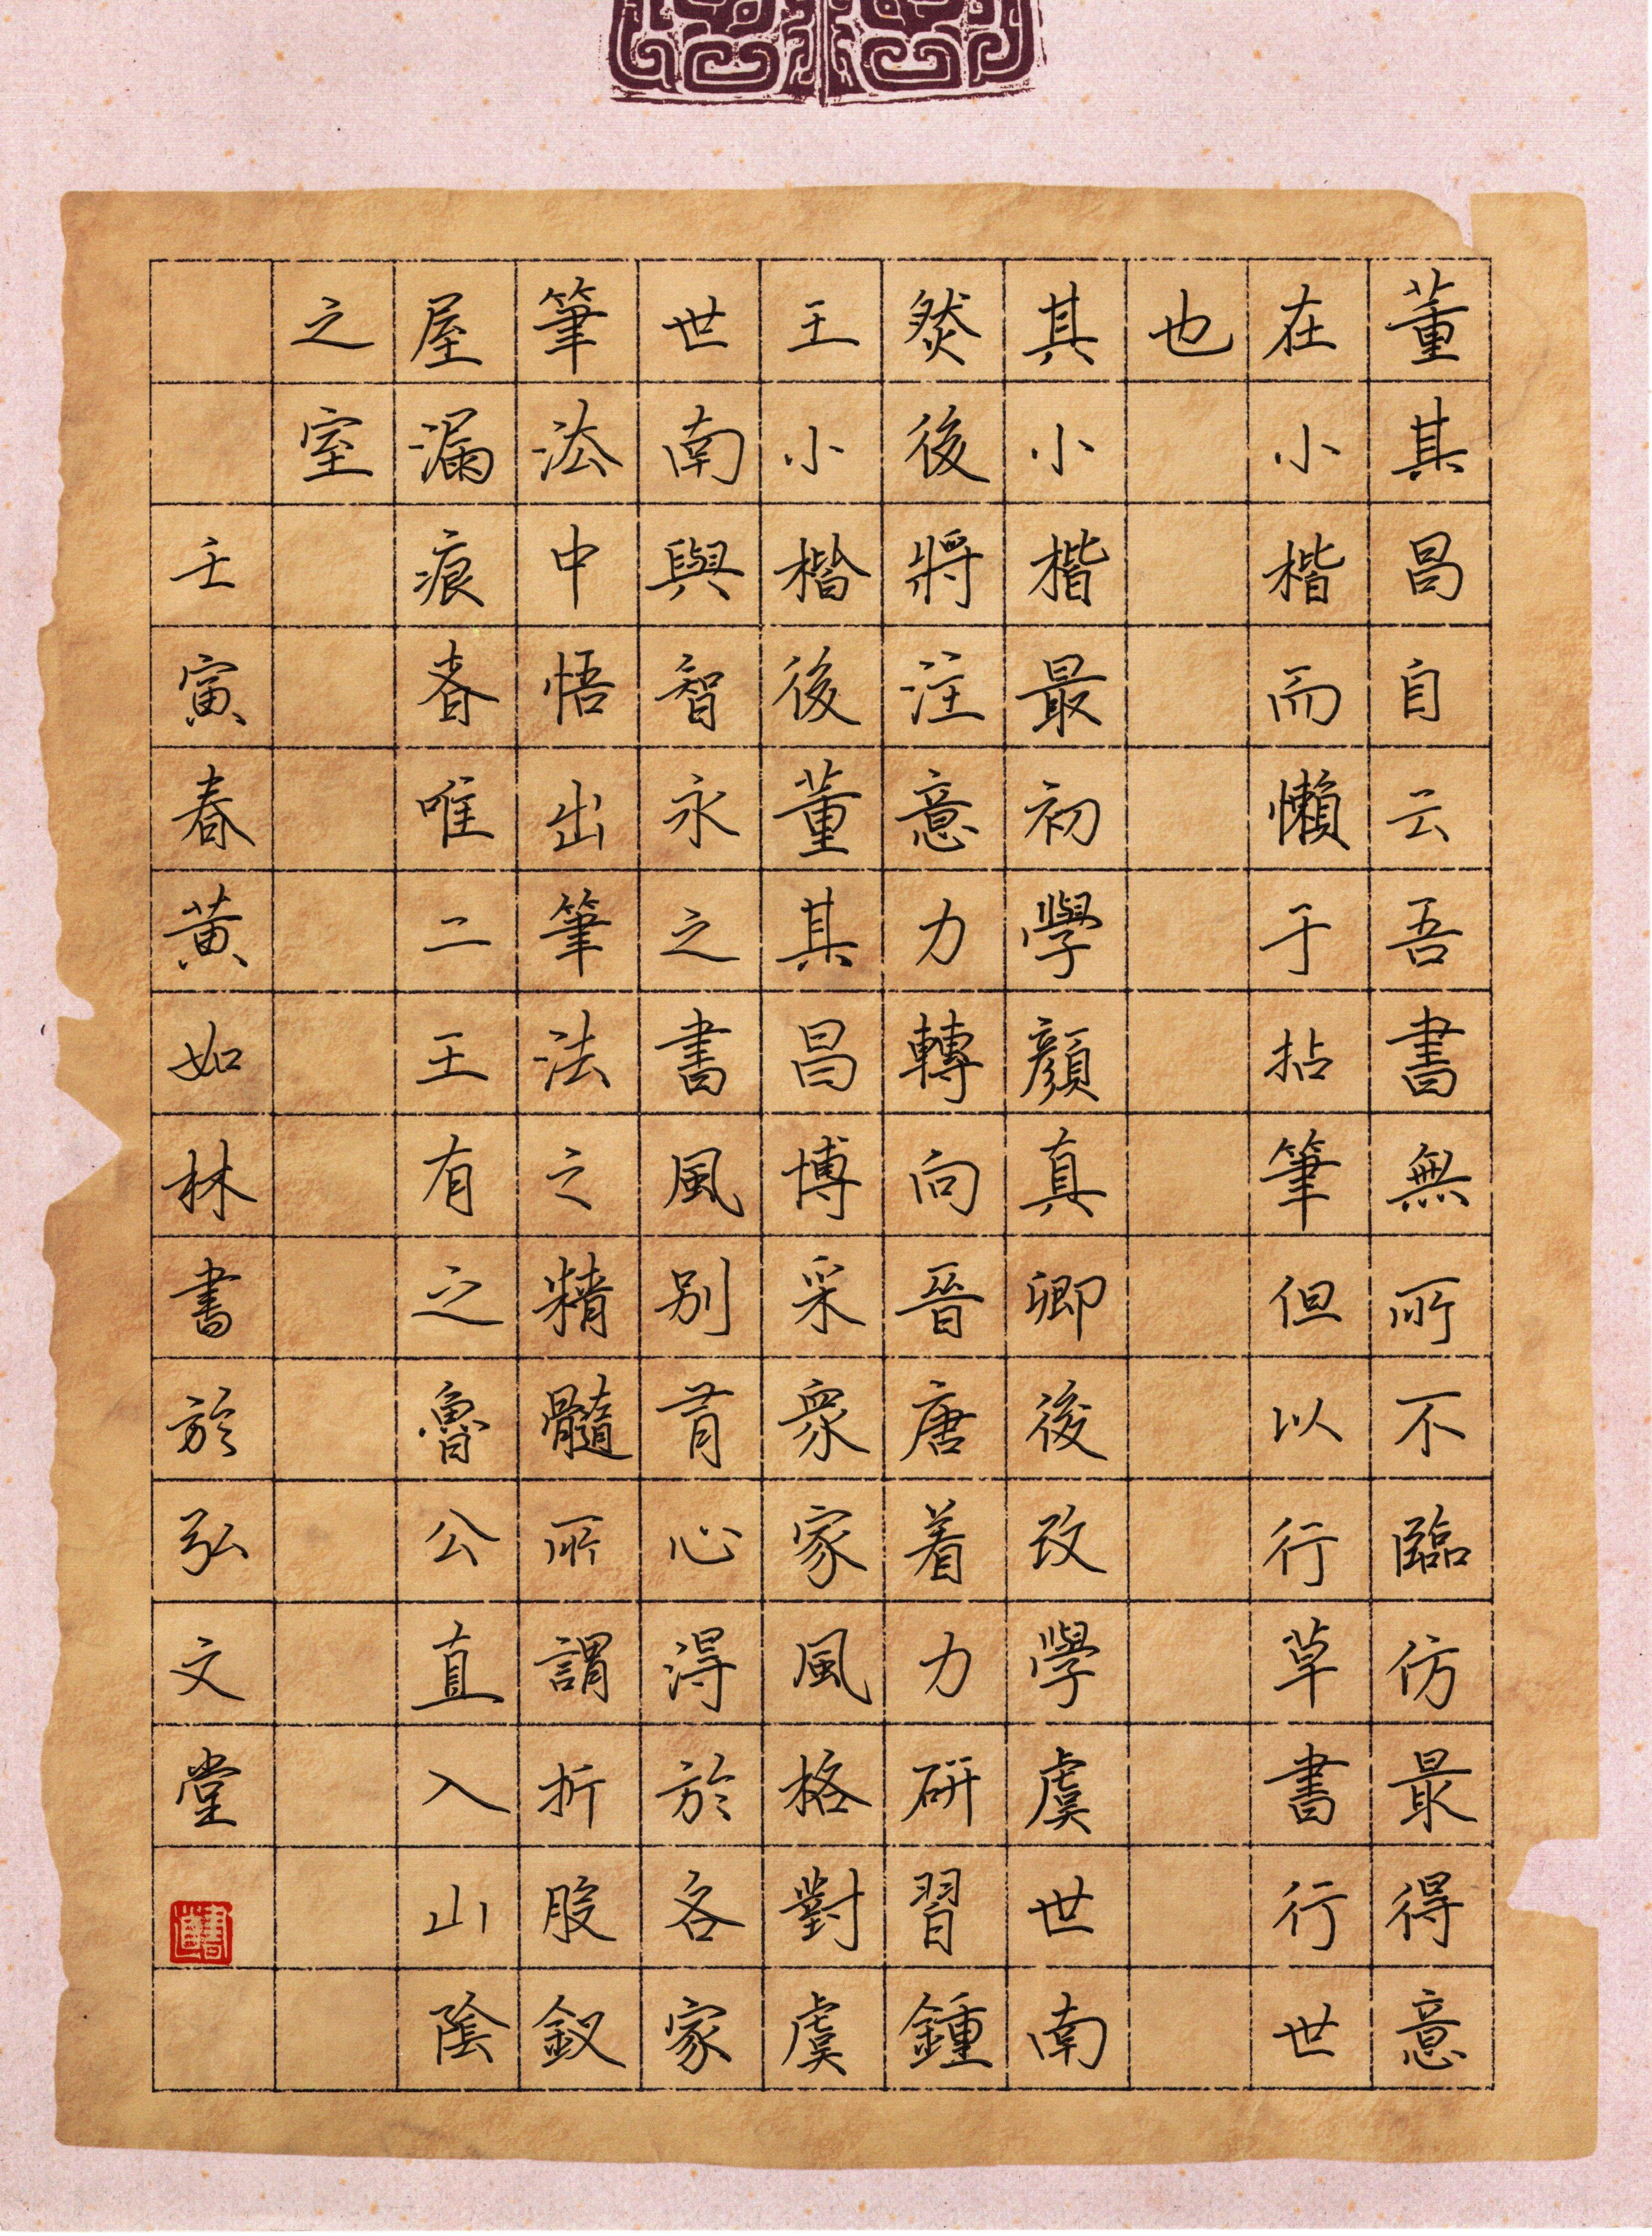 董其昌自云吾書無所不臨仿最得意
在小楷而懶于拈筆但以行草書行世
也
其小楷最初學顏真卿後改學虞世南
然後將注意力轉向晉唐着力研習鍾
王小楷後董其昌博采衆家風格對虞
世南與智永之書風別有心得於各家
筆法中悟出筆法之精髓所謂折股釵
屋漏痕者唯二王有之魯公直入山陰
之室
壬寅春黃如林書於弘文堂